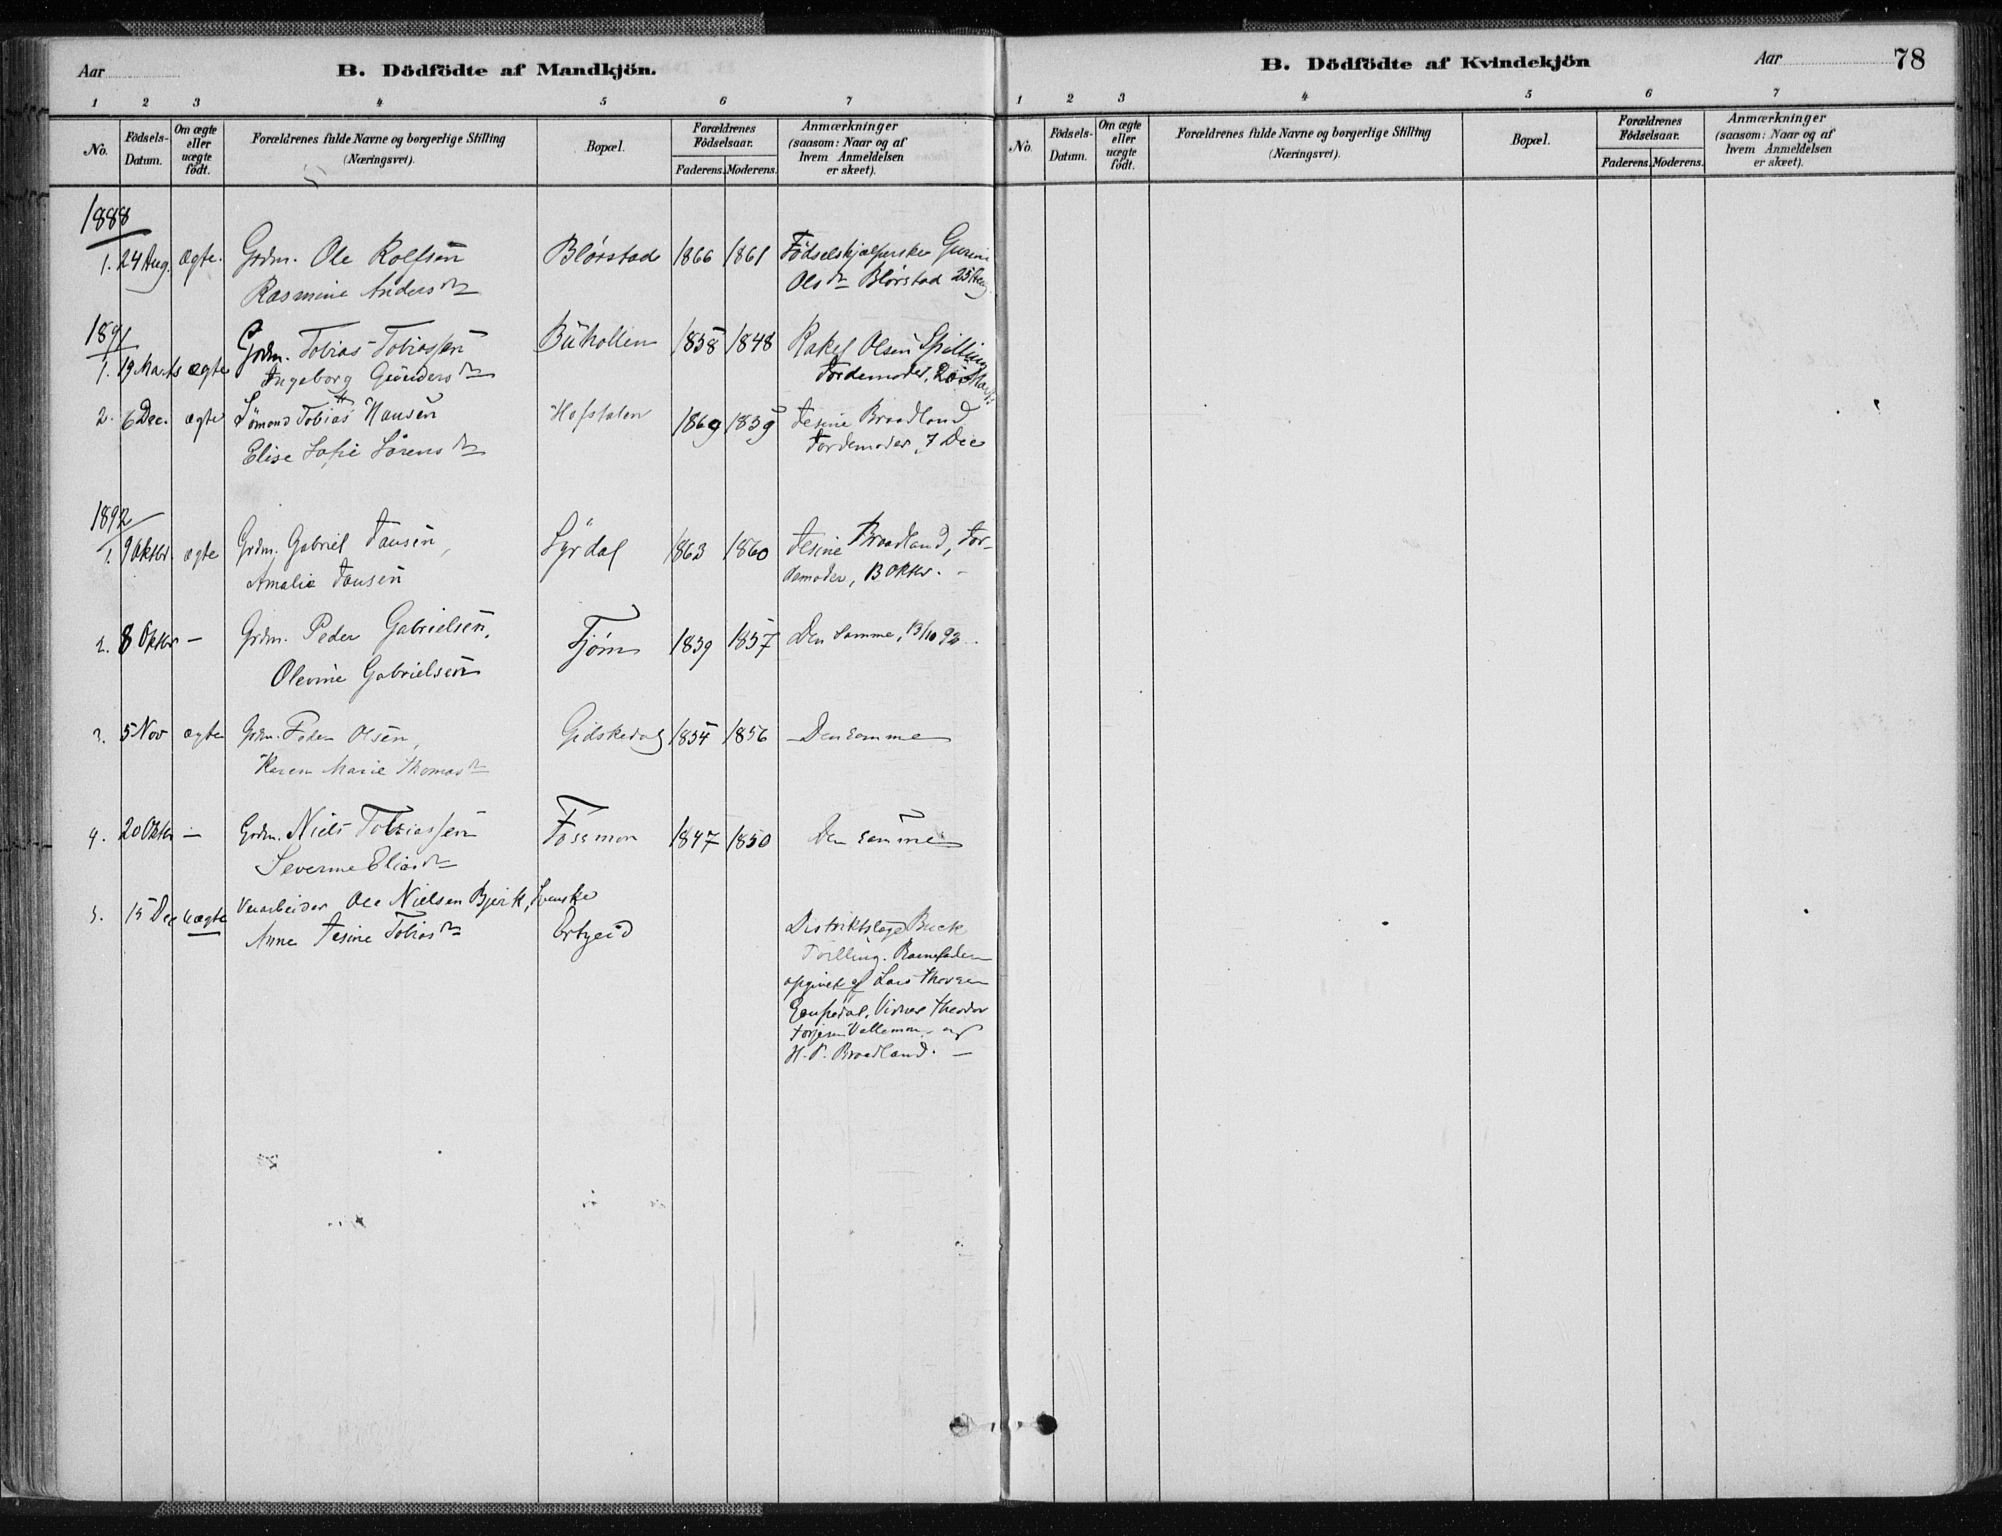 Aar
B. Dödfödte af Mandkjön.
1 2 3 4 5 6 7
No.
Födsels-Datum.
Om ægte eller uægte födt.
Forældrenes fulde Navne og borgerlige Stilling
(Næringsvei).
Bopæl.
Forældrenes Födselsaar.
Faderens. Moderens.
Anmærkninger
(saasom: Naar og af
hvem Anmeldelsen
er skeet).
1888
1. 24 Aug. ægte. Grdm. Ole Rolfsen Blørstad 1866 1861 Fødselshjælperske Gurine
Rasmine Andersdtr Olsdtr Blørstad 25 Aug.
1891
1. 19 Marts ægte Grdm. Tobias Tobiassen Buhollen 1858 1848 Rakel Olsen Spilling
Ingeborg Gundersdtr Jordemoder, 20 Marts
2. 6 Dec. ægte Sømand Tobias Hansen 1869 1859 Jesine Braadland
Elise Sofie Sørensdtr Jordemoder, 7 Dec
1892
1. 9 Oktbr. ægte Grdm. Gabriel Jansen, Lyrdal 1863 1860 Jesine Braadland, Jor-
Amalie Jansen demoder, 13 Oktbr. -
2. 8 Oktbr - Grdm. Peder Gabrielsen, Fjøm 1859 1857 Den Samme, 13/10 92.
Olevine Gabrielsen
3. 5 Nov ægte Grdm. Peder Olsen, Gidskedal 1854 1856 Den samme
Karen Marie Thomasdtr
4. 20 Oktbr - Grdm. Niels Tobiassen Fossmon 1847 1850 Den samme
Severine Eliasdtr
5. 15 Dec uægte Veiarbeider Ole Nielsen Bjerk, Svenske
Anne Jesine Tobiasdtr Ertzeid Distriktslæge Buck
Barnefader
opgivet af Lars Thorsen
Vidner Theodor
Torjesen Vallemon og
H. P. Braadland. -
B. Dödfödte af Kvindekjön
Aar
78
1 2 3 4 5 6 7
No.
Födsels-Datum.
Om ægte eller uægte födt.
Forældrenes fulde Navne og borgerlige Stilling
(Næringsvei).
Bopæl.
Forældrenes Födselsaar.
Faderens. Moderens.
Anmærkninger
(saasom: Naar og af
hvem Anmeldelsen
er skeet).